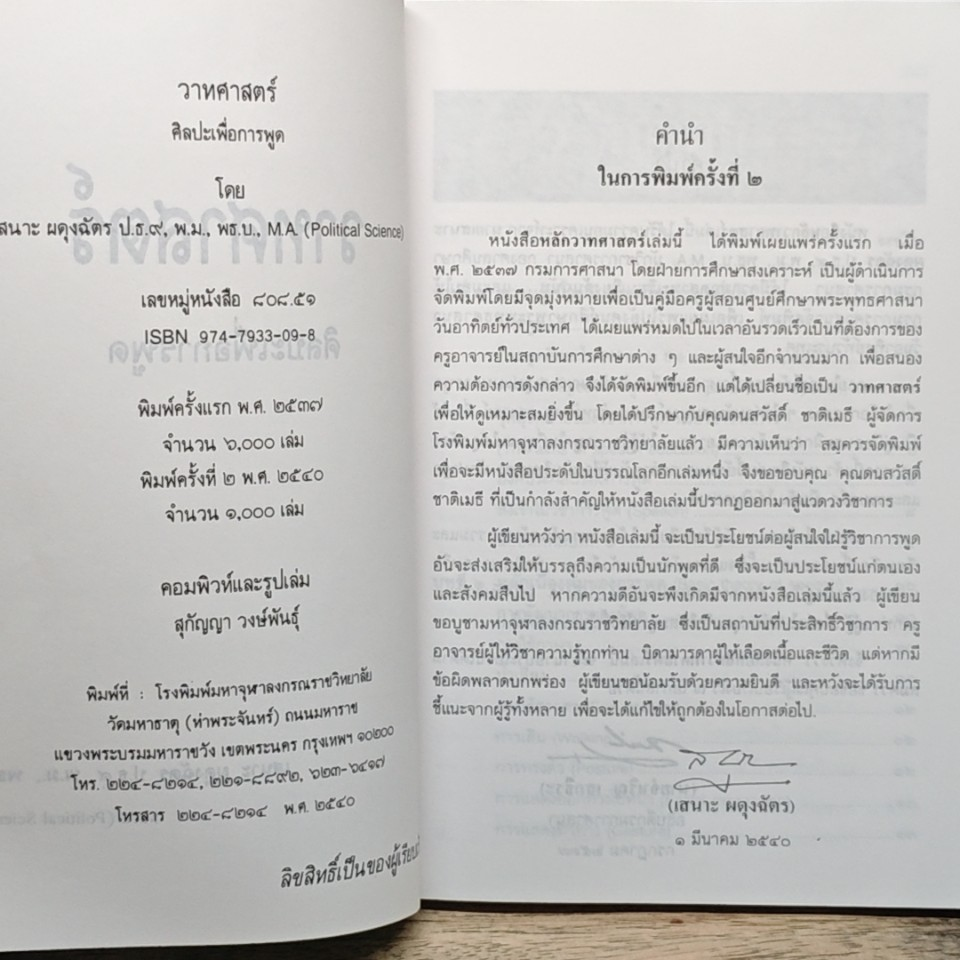 วาทศาสตร์
ศิลปะเพื่อการพูด
โดย
เสนาะ ผดุงฉัตร ป.ธ.๙, พ.ม., พธ.บ., M.A. (Political Science)
เลขหมู่หนังสือ ๘๐๘.๕๑
ISBN 974-7933-09-8
พิมพ์ครั้งแรก พ.ศ. ๒๕๓๗
จำนวน ๖,๐๐๐ เล่ม
พิมพ์ครั้งที่ ๒ พ.ศ. ๒๕๔๐
จำนวน ๑,๐๐๐ เล่ม
คอมพิวท์และรูปเล่ม
สุกัญญา วงษ์พันธุ์
พิมพ์ที่ : โรงพิมพ์มหาจุฬาลงกรณราชวิทยาลัย
วัดมหาธาตุ (ท่าพระจันทร์) ถนนมหาราช
แขวงพระบรมมหาราชวัง เขตพระนคร กรุงเทพฯ ๑๐๒๐๐
โทร. ๒๒๔-๘๒๑๔, ๒๒๑-๘๘๙๒, ๖๒๓-๖๔๑๗
โทรสาร ๒๒๔-๘๒๑๔ พ.ศ. ๒๕๔๐
ลิขสิทธิ์เป็นของผู้เรียบ
คำนำ
ในการพิมพ์ครั้งที่ ๒
หนังสือหลักวาทศาสตร์เล่มนี้ ได้พิมพ์เผยแพร่ครั้งแรก เมื่อ
พ.ศ. ๒๕๓๗ กรมการศาสนา โดยฝ่ายการศึกษาสงเคราะห์ เป็นผู้ดำเนินการ
จัดพิมพ์โดยมีจุดมุ่งหมายเพื่อเป็นคู่มือครูผู้สอนศูนย์ศึกษาพระพุทธศาสนา
วันอาทิตย์ทั่วประเทศ ได้เผยแพร่หมดไปในเวลาอันรวดเร็วเป็นที่ต้องการของ
ครูอาจารย์ในสถาบันการศึกษาต่าง ๆ และผู้สนใจอีกจำนวนมาก เพื่อสนอง
ความต้องการดังกล่าว จึงได้จัดพิมพ์ขึ้นอีก แต่ได้เปลี่ยนชื่อเป็น วาทศาสตร์
เพื่อให้ดูเหมาะสมยิ่งขึ้น โดยได้ปรึกษากับคุณดนสวัสดิ์ ชาติเมธี ผู้จัดการ
โรงพิมพ์มหาจุฬาลงกรณราชวิทยาลัยแล้ว มีความเห็นว่า สมควรจัดพิมพ์
เพื่อจะมีหนังสือประดับในบรรณโลกอีกเล่มหนึ่ง จึงขอขอบคุณ คุณดนสวัสดิ์
ชาติเมธี ที่เป็นกำลังสำคัญให้หนังสือเล่มนี้ปรากฏออกมาสู่แวดวงวิชาการ
ผู้เขียนหวังว่า หนังสือเล่มนี้ จะเป็นประโยชน์ต่อผู้สนใจใฝ่รู้วิชาการพูด
อันจะส่งเสริมให้บรรลุถึงความเป็นนักพูดที่ดี ซึ่งจะเป็นประโยชน์แก่ตนเอง
และสังคมสืบไป หากความดีอันจะพึงเกิดมีจากหนังสือเล่มนี้แล้ว ผู้เขียน
ขอบูชามหาจุฬาลงกรณราชวิทยาลัย ซึ่งเป็นสถาบันที่ประสิทธิ์วิชาการ ครู
อาจารย์ผู้ให้วิชาความรู้ทุกท่าน บิดามารดาผู้ให้เลือดเนื้อและชีวิต แต่หากมี
ข้อผิดพลาดบกพร่อง ผู้เขียนขอน้อมรับด้วยความยินดี และหวังจะได้รับการ
ชี้แนะจากผู้รู้ทั้งหลาย เพื่อจะได้แก้ไขให้ถูกต้องในโอกาสต่อไป.
(เสนาะ ผดุงฉัตร)
๑ มีนาคม ๒๕๔๐